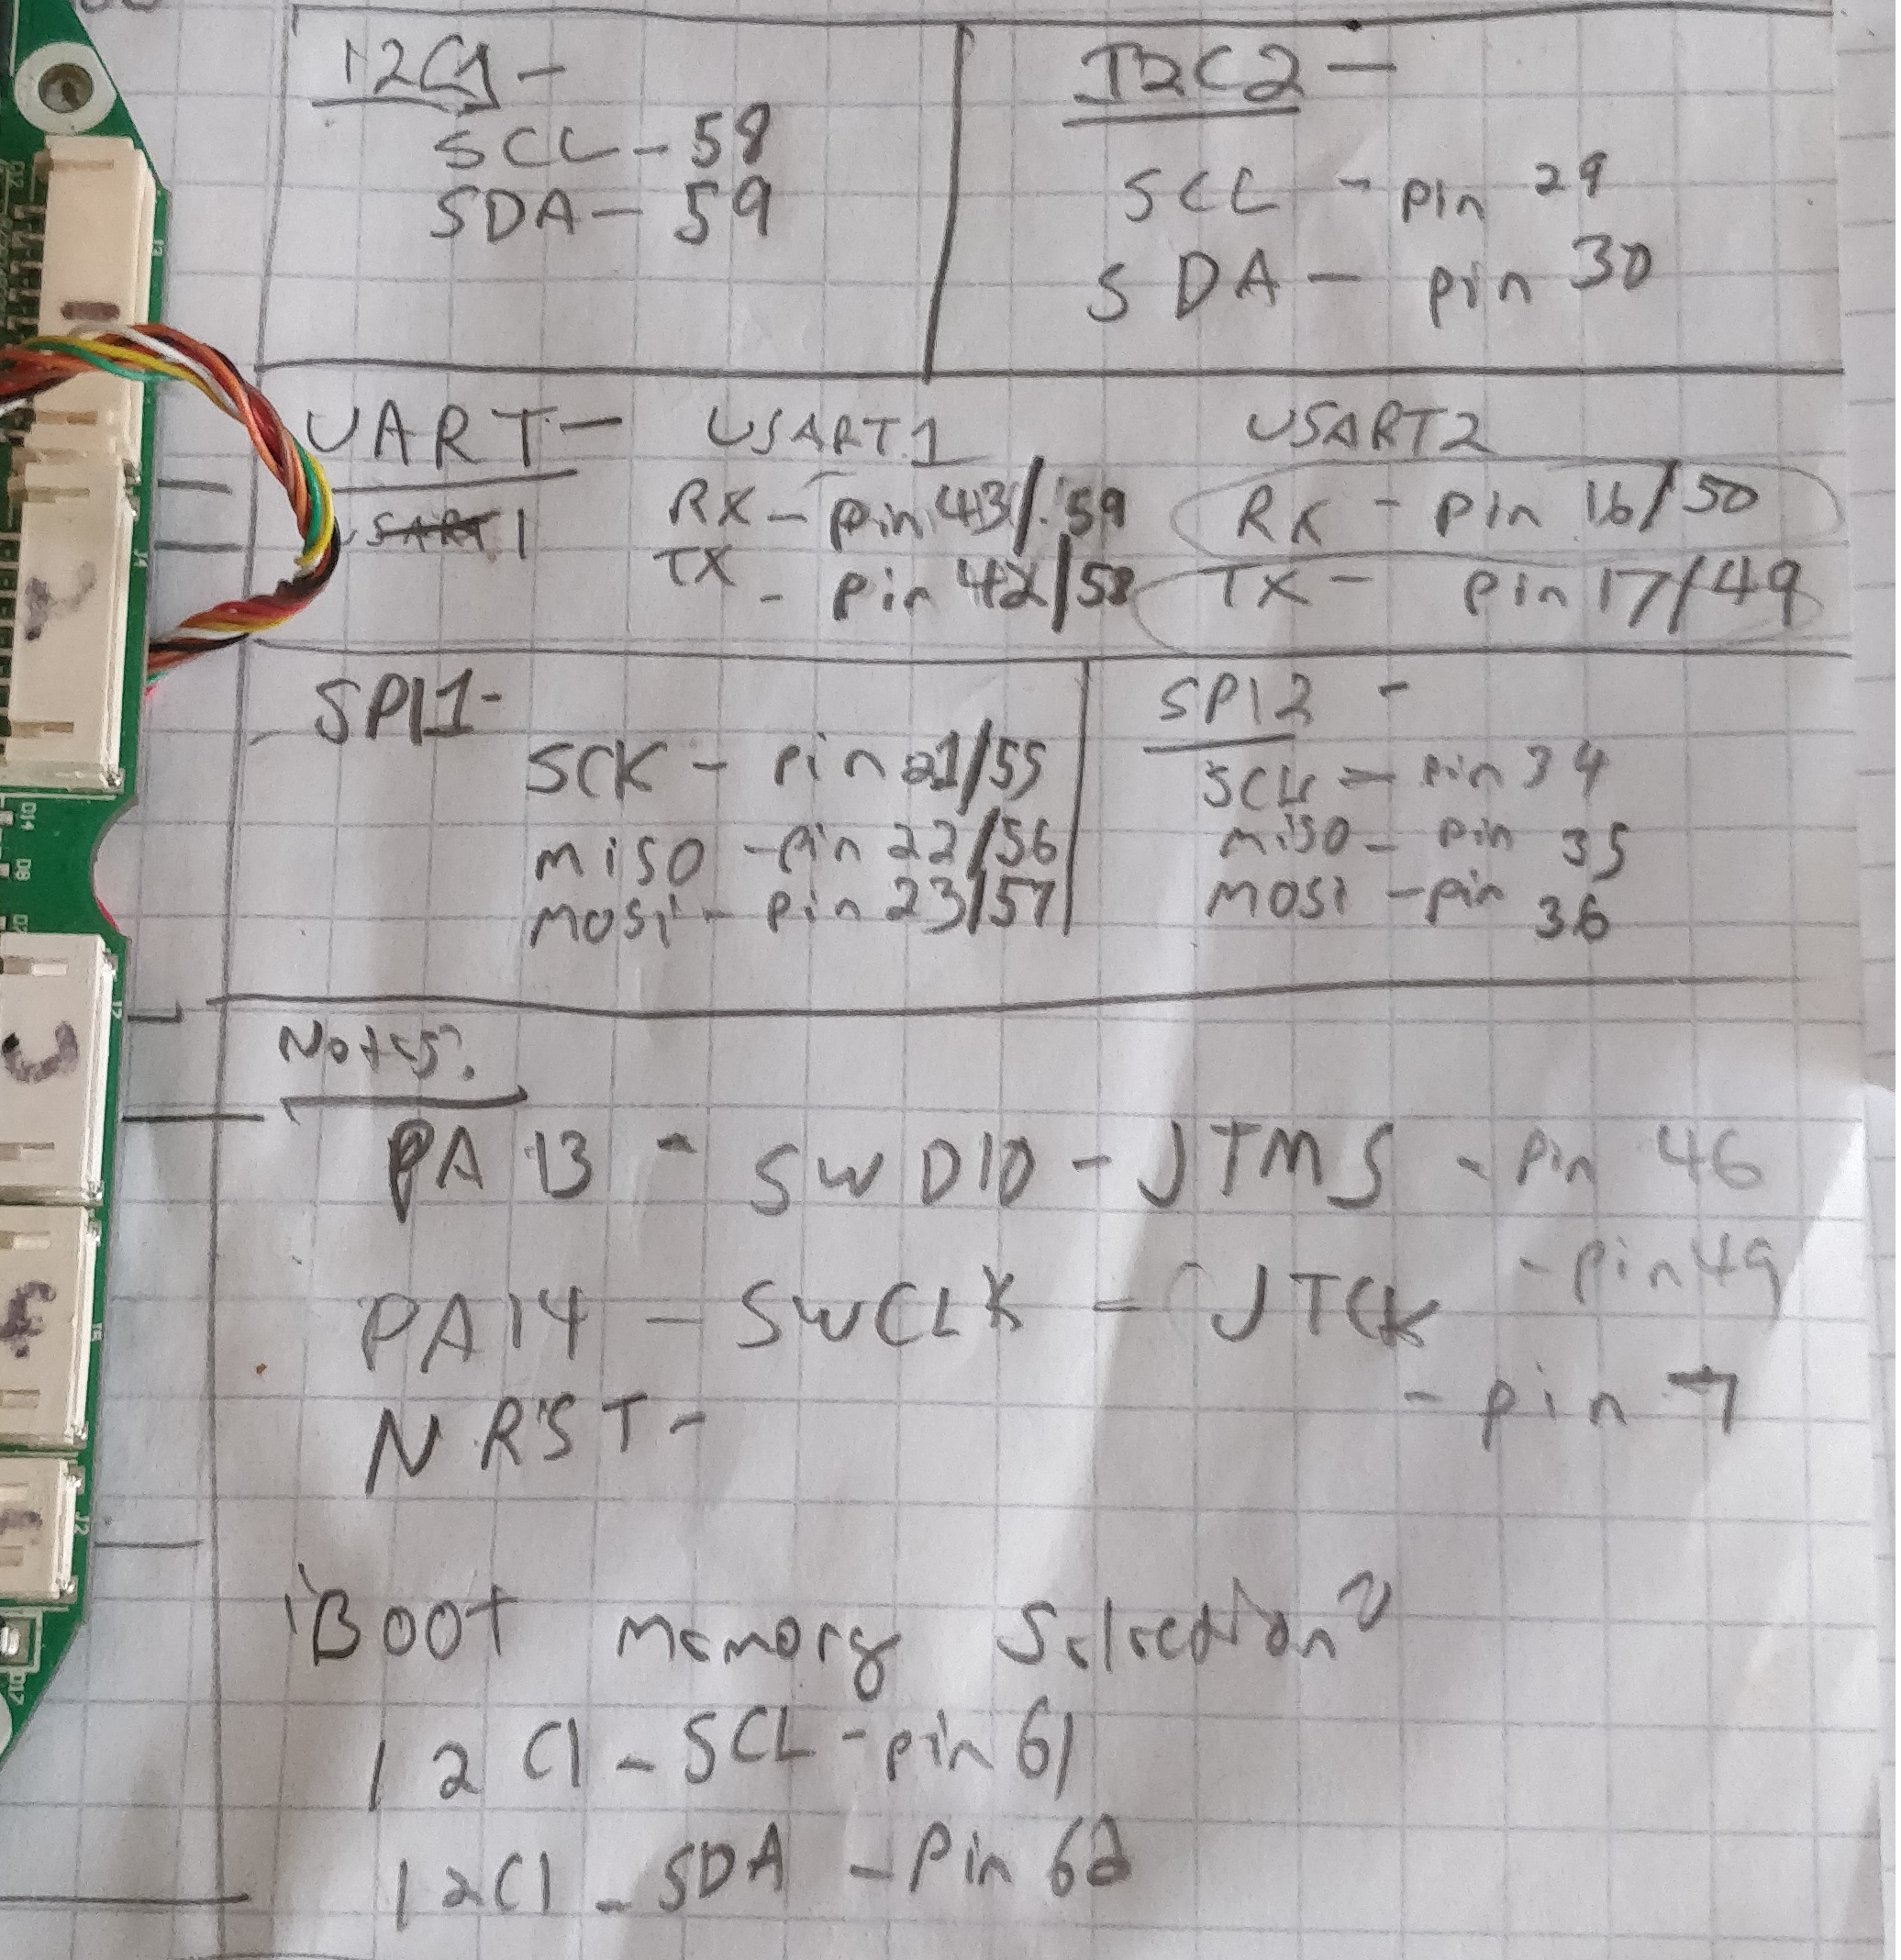 I2C1 -
SCL - 58
SDA - 59
I2C2 -
SCL - pin 29
SDA - pin 30
UART - USART1 USART2
USART1
RX - pin 43/59
TX - pin 42/58
RX - pin 16/50
TX - pin 17/49
SPI1 -
SCK - pin 21/55
miso - pin 22/56
mosi - pin 23/57
SPI2 -
SCK - pin 34
miso - pin 35
mosi - pin 36
Notes:
PA13 - SWDIO - JTMS - pin 46
PA14 - SWCLK - JTCK - pin 49
NRST - - pin 7
Boot memory Selection?
I2C1 - SCL - pin 61
I2C1 - SDA - Pin 62
J3
J4
D14
D8
J7
J5
J2
D17